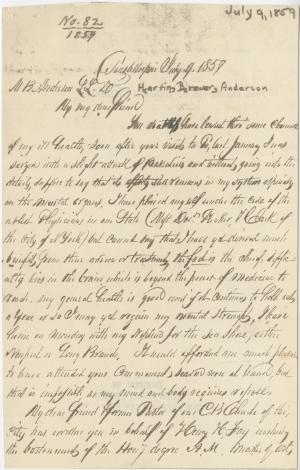 July 9, 1859
No. 82
1859
Poughkeepsie July 9. 1859
M B Anderson LL D Martin Brewer Anderson
My my dear friend
You doubtless have learned through some channel
of my ill health, soon after your visits to Po, last January I was
seized with a slight attack of Paralisis and without going into the
details suffice to say that its effects still remains in my system especially
on the mental organs, I have placed myself under the care of the
ablest Physicians in our State (Miss Docr Parker & Clark of
the City of N York) but cannot say that I have yet derived much
benefit from their advice or treatment the fact is the chief difficulty
lies in the brain which is beyond the power of medicine to
reach. my general health is good and if it continues to hold out
a year or so I may yet regain my mental strength, I leave
home on Monday with my nephew for the sea shore, either
Newport or Long Branch, It would afforded me much pleasure
to have attended your Commencement season were it
but
that is impossible as my mind and body requires repose
My dear friend & former Pastor of our C B Church of this
City has written you in behalf of Henry H. Fay wishing
the bestowment of the Hony degree A.M.